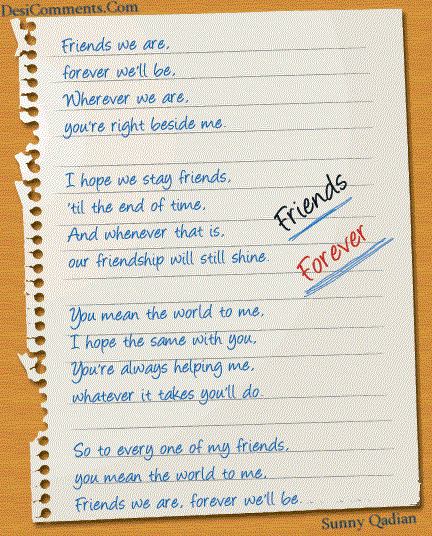 DesiComments.Com
Friends we are,
forever we'll be,
Wherever we are,
you're right beside me.
I hope we stay friends,
'til the end of time,
And whenever that is,
our friendship will still shine.
Friends
Forever
You mean the world to me,
I hope the same with you,
You're always helping me,
whatever it takes you'll do.
So to every one of my friends,
you mean the world to me,
Friends we are, forever we'll be....
Sunny Qadian